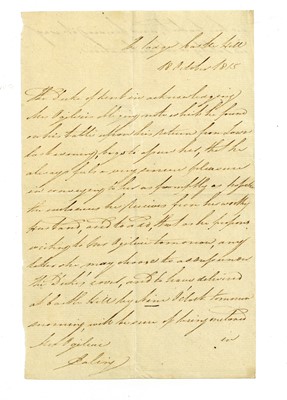 Castle Hill
18 October 1815
The Duke of Kent in acknowledging
Mrs Ogilvie's obliging note which he found
on his table upon his return from
last evening, begs to assure her, that he
always feels a very sincere pleasure
in conveying to her as promptly as
the enclosures he receives from her worthy
husband, and to add, that as he proposes
writing to Mr Ogilvie tomorrow, any
letter she may choose to
the Duke's cover, and to have delivered
at Castle Hill by Nine O'Clock tomorrow
morning, will be sure of being
Mrs Ogilvie